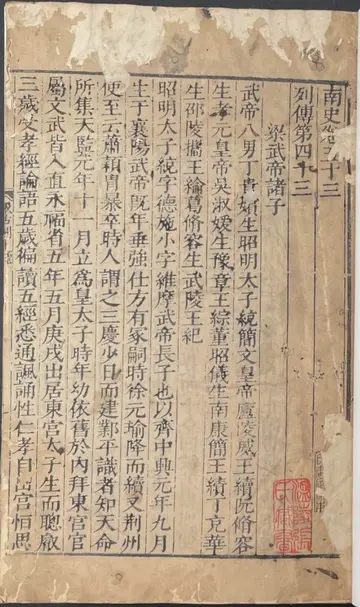 南史卷五十三
列傳第四十三
梁武帝諸子
武帝八男丁貴嬪生昭明太子統簡文皇帝廬陵威王續阮脩容
生孝元皇帝吳淑媛生豫章王綜董昭儀生南康簡王績丁充華
生邵陵攜王綸葛脩容生武陵王紀
昭明太子統字德施小字維摩武帝長子也以齊中興元年九月
生于襄陽武帝旣年垂強仕方有冢嗣時徐元瑜降而續又荆州
使至云蕭穎胄暴卒時人謂之三慶少日而建鄴平識者知天命
所集天監元年十一月立爲皇太子時年幼依舊於內拜東宮官
屬文武皆入直永福省五年五月庚戌出居東宮太子生而聰叡
三歲受孝經論語五歲徧讀五經悉通諷誦性仁孝自出宮恒思